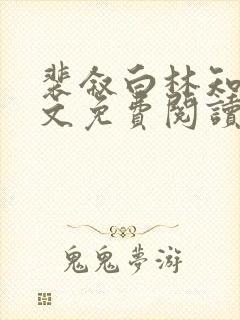 裴叙白林知
文免費閱讀
鬼鬼夢游